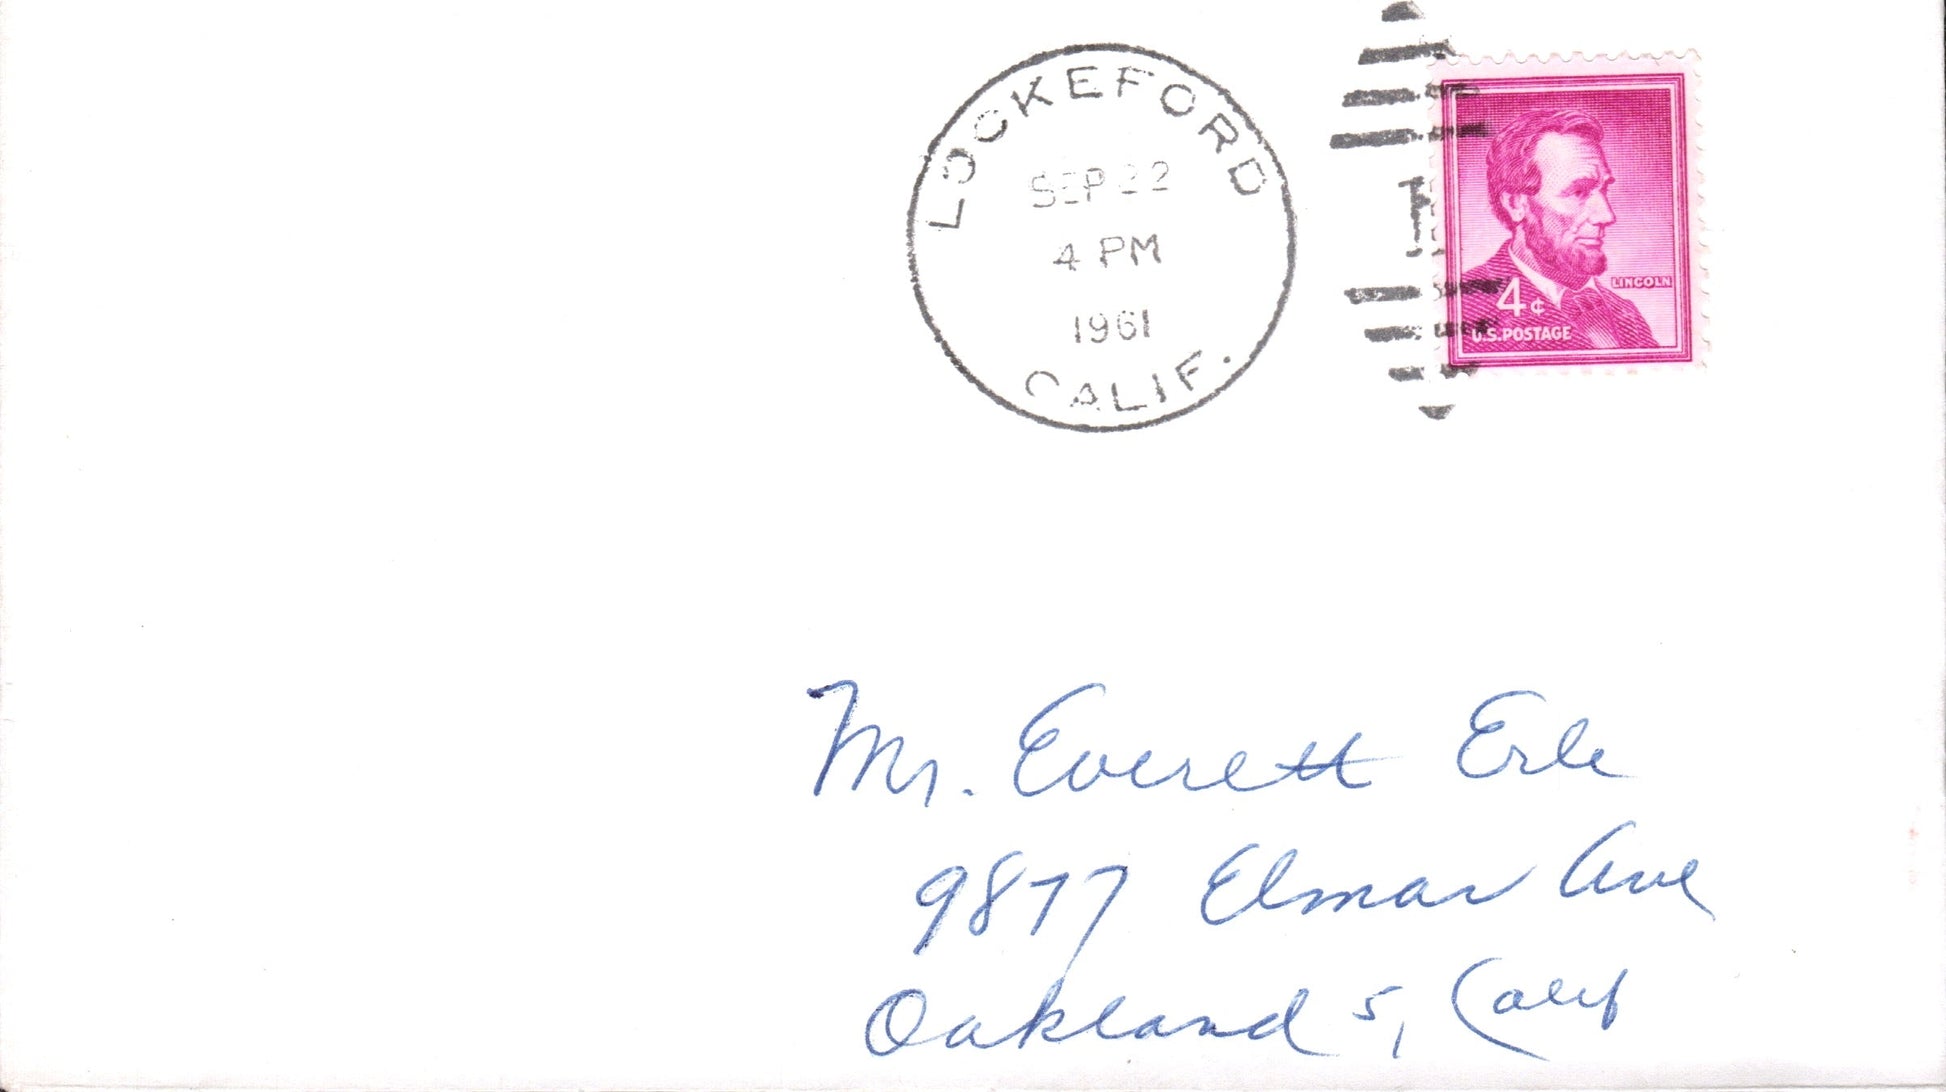 LOCKEFORD
SEP 22
4 PM
1961
CALIF.
LINCOLN
4¢
U.S. POSTAGE
Mr. Everett Erle
9877 Elmar Ave
Oakland 5, Calif